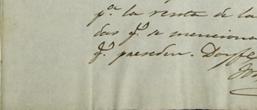 pª la venta de la
das qᵉ se menciona
qᵉ preceden. Doyfe